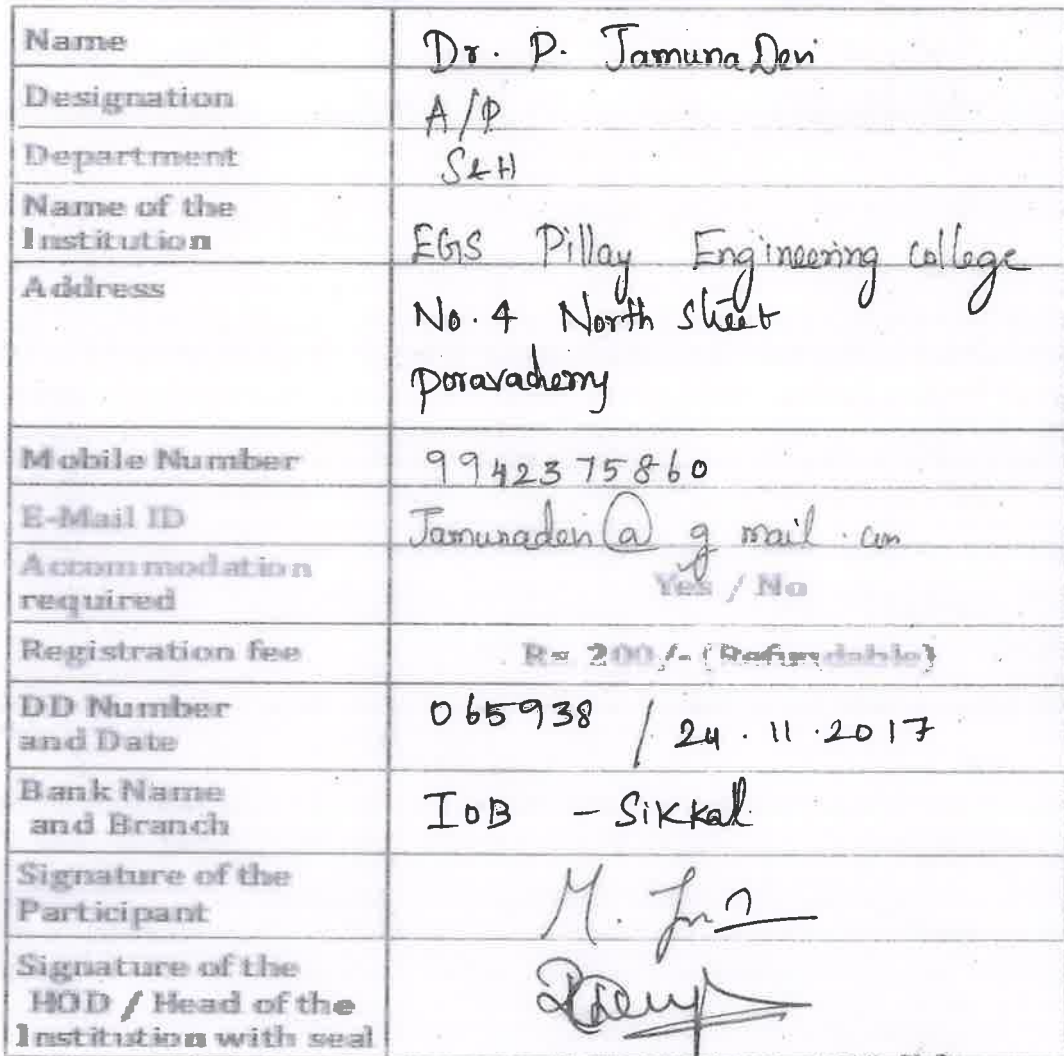 Name Dr. P. Jamuna Devi
Designation A/P
Department S&H
Name of the
Institution EGS Pillay Engineering college
Address No. 4 North street
poravacherry
Mobile Number 9942375860
E-Mail ID Jamunadevi@gmail.com
Accommodation
required Yes / No
Registration fee Rs. 200/- (Refundable)
DD Number
and Date 065938 / 24.11.2017
Bank Name
and Branch IOB - Sikkal
Signature of the
Participant
Signature of the
HOD / Head of the
Institution with seal